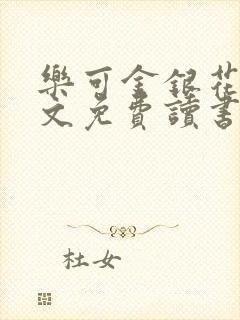 樂可金銀花
文免費讀書
杜女